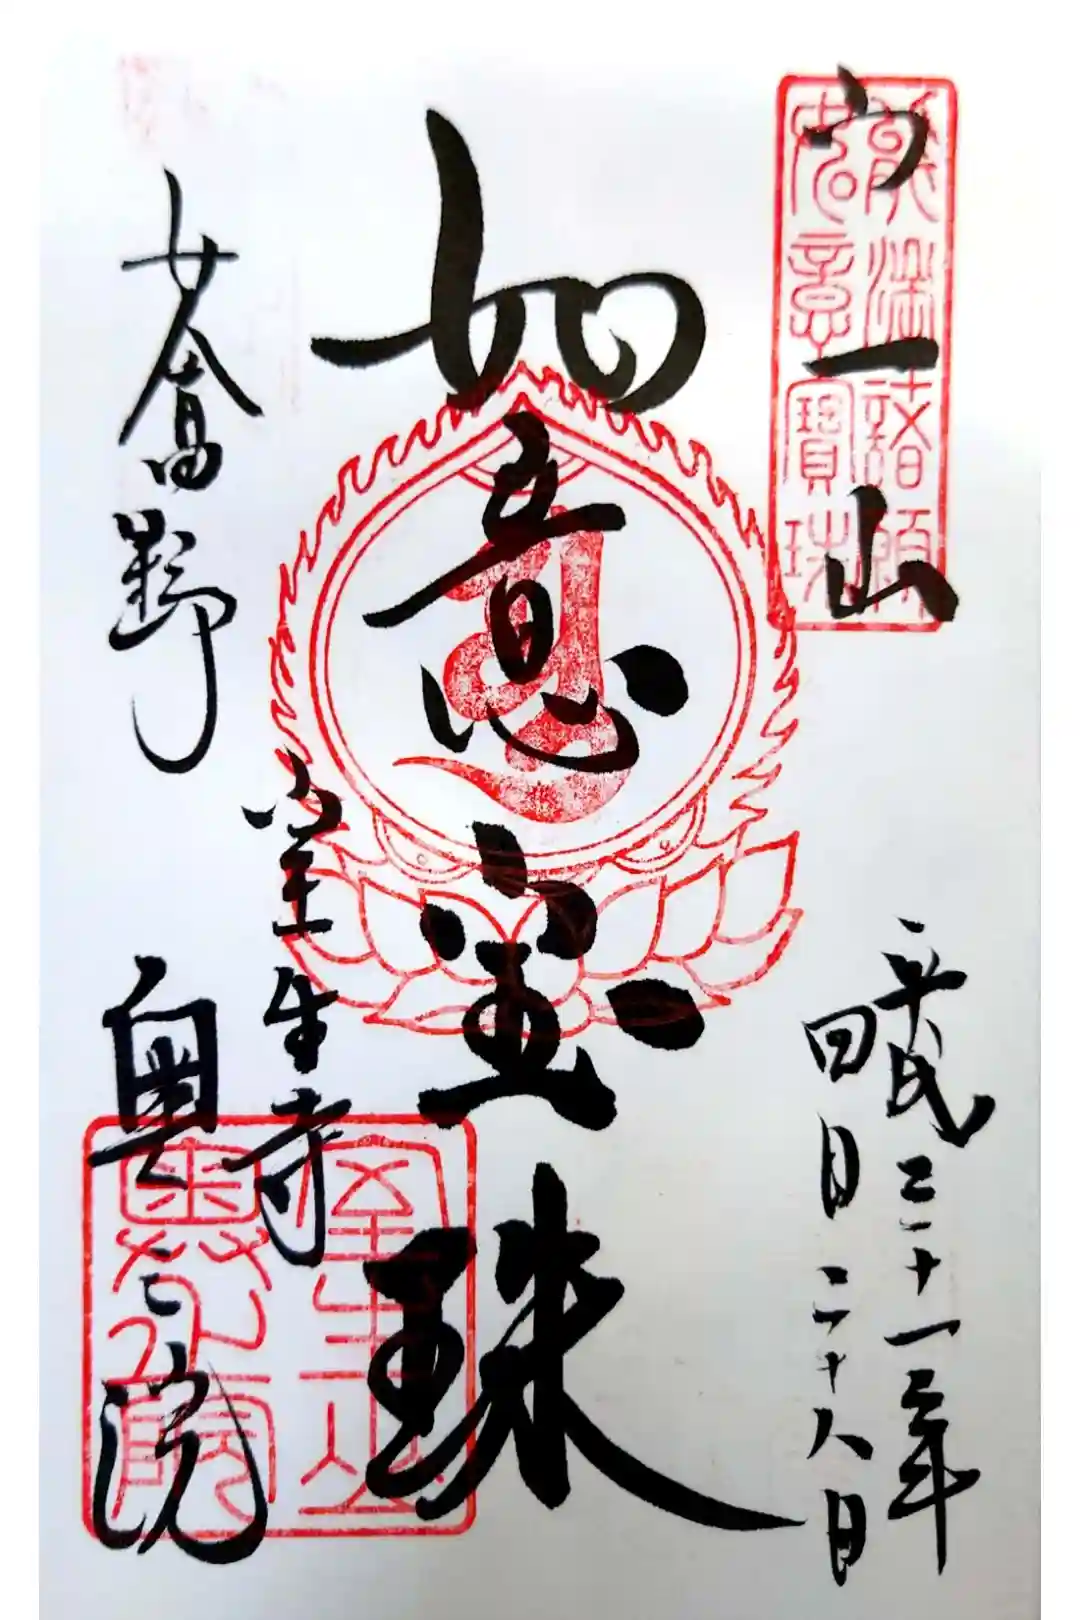 宀一山
能満諸願
如意寶珠
平成三十一年
四月二十八日
如意宝珠
室生寺
女人高野
奥之院
室生山
奥之院